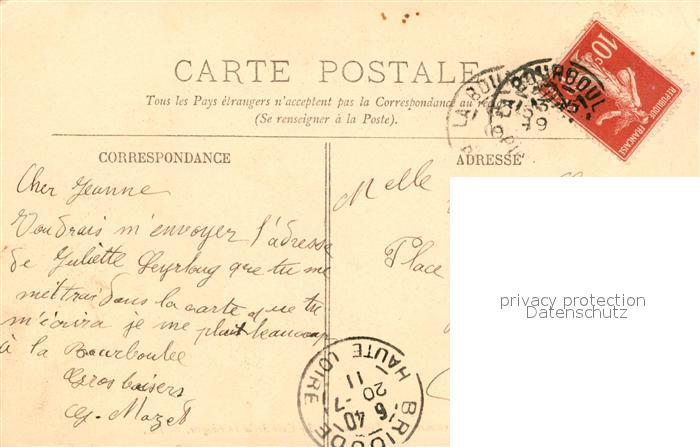 CARTE POSTALE
Tous les Pays étrangers n'acceptent pas la Correspondance au
(Se renseigner à la Poste).
CORRESPONDANCE
ADRESSE
10c
REPUBLIQUE FRANÇAISE
LA BOURBOUL
Cher Jeanne
Voudrais m'envoyer l'adresse
de Juliette que tu me
mettrai dans la carte que tu
m'écrira je me plait beaucoup
à la Bourboulee
Gros baisers
G. Mazet
Melle
Place
BRIOUDE
HAUTE LOIRE
6 40
20 -7
11
privacy protection
Datenschutz